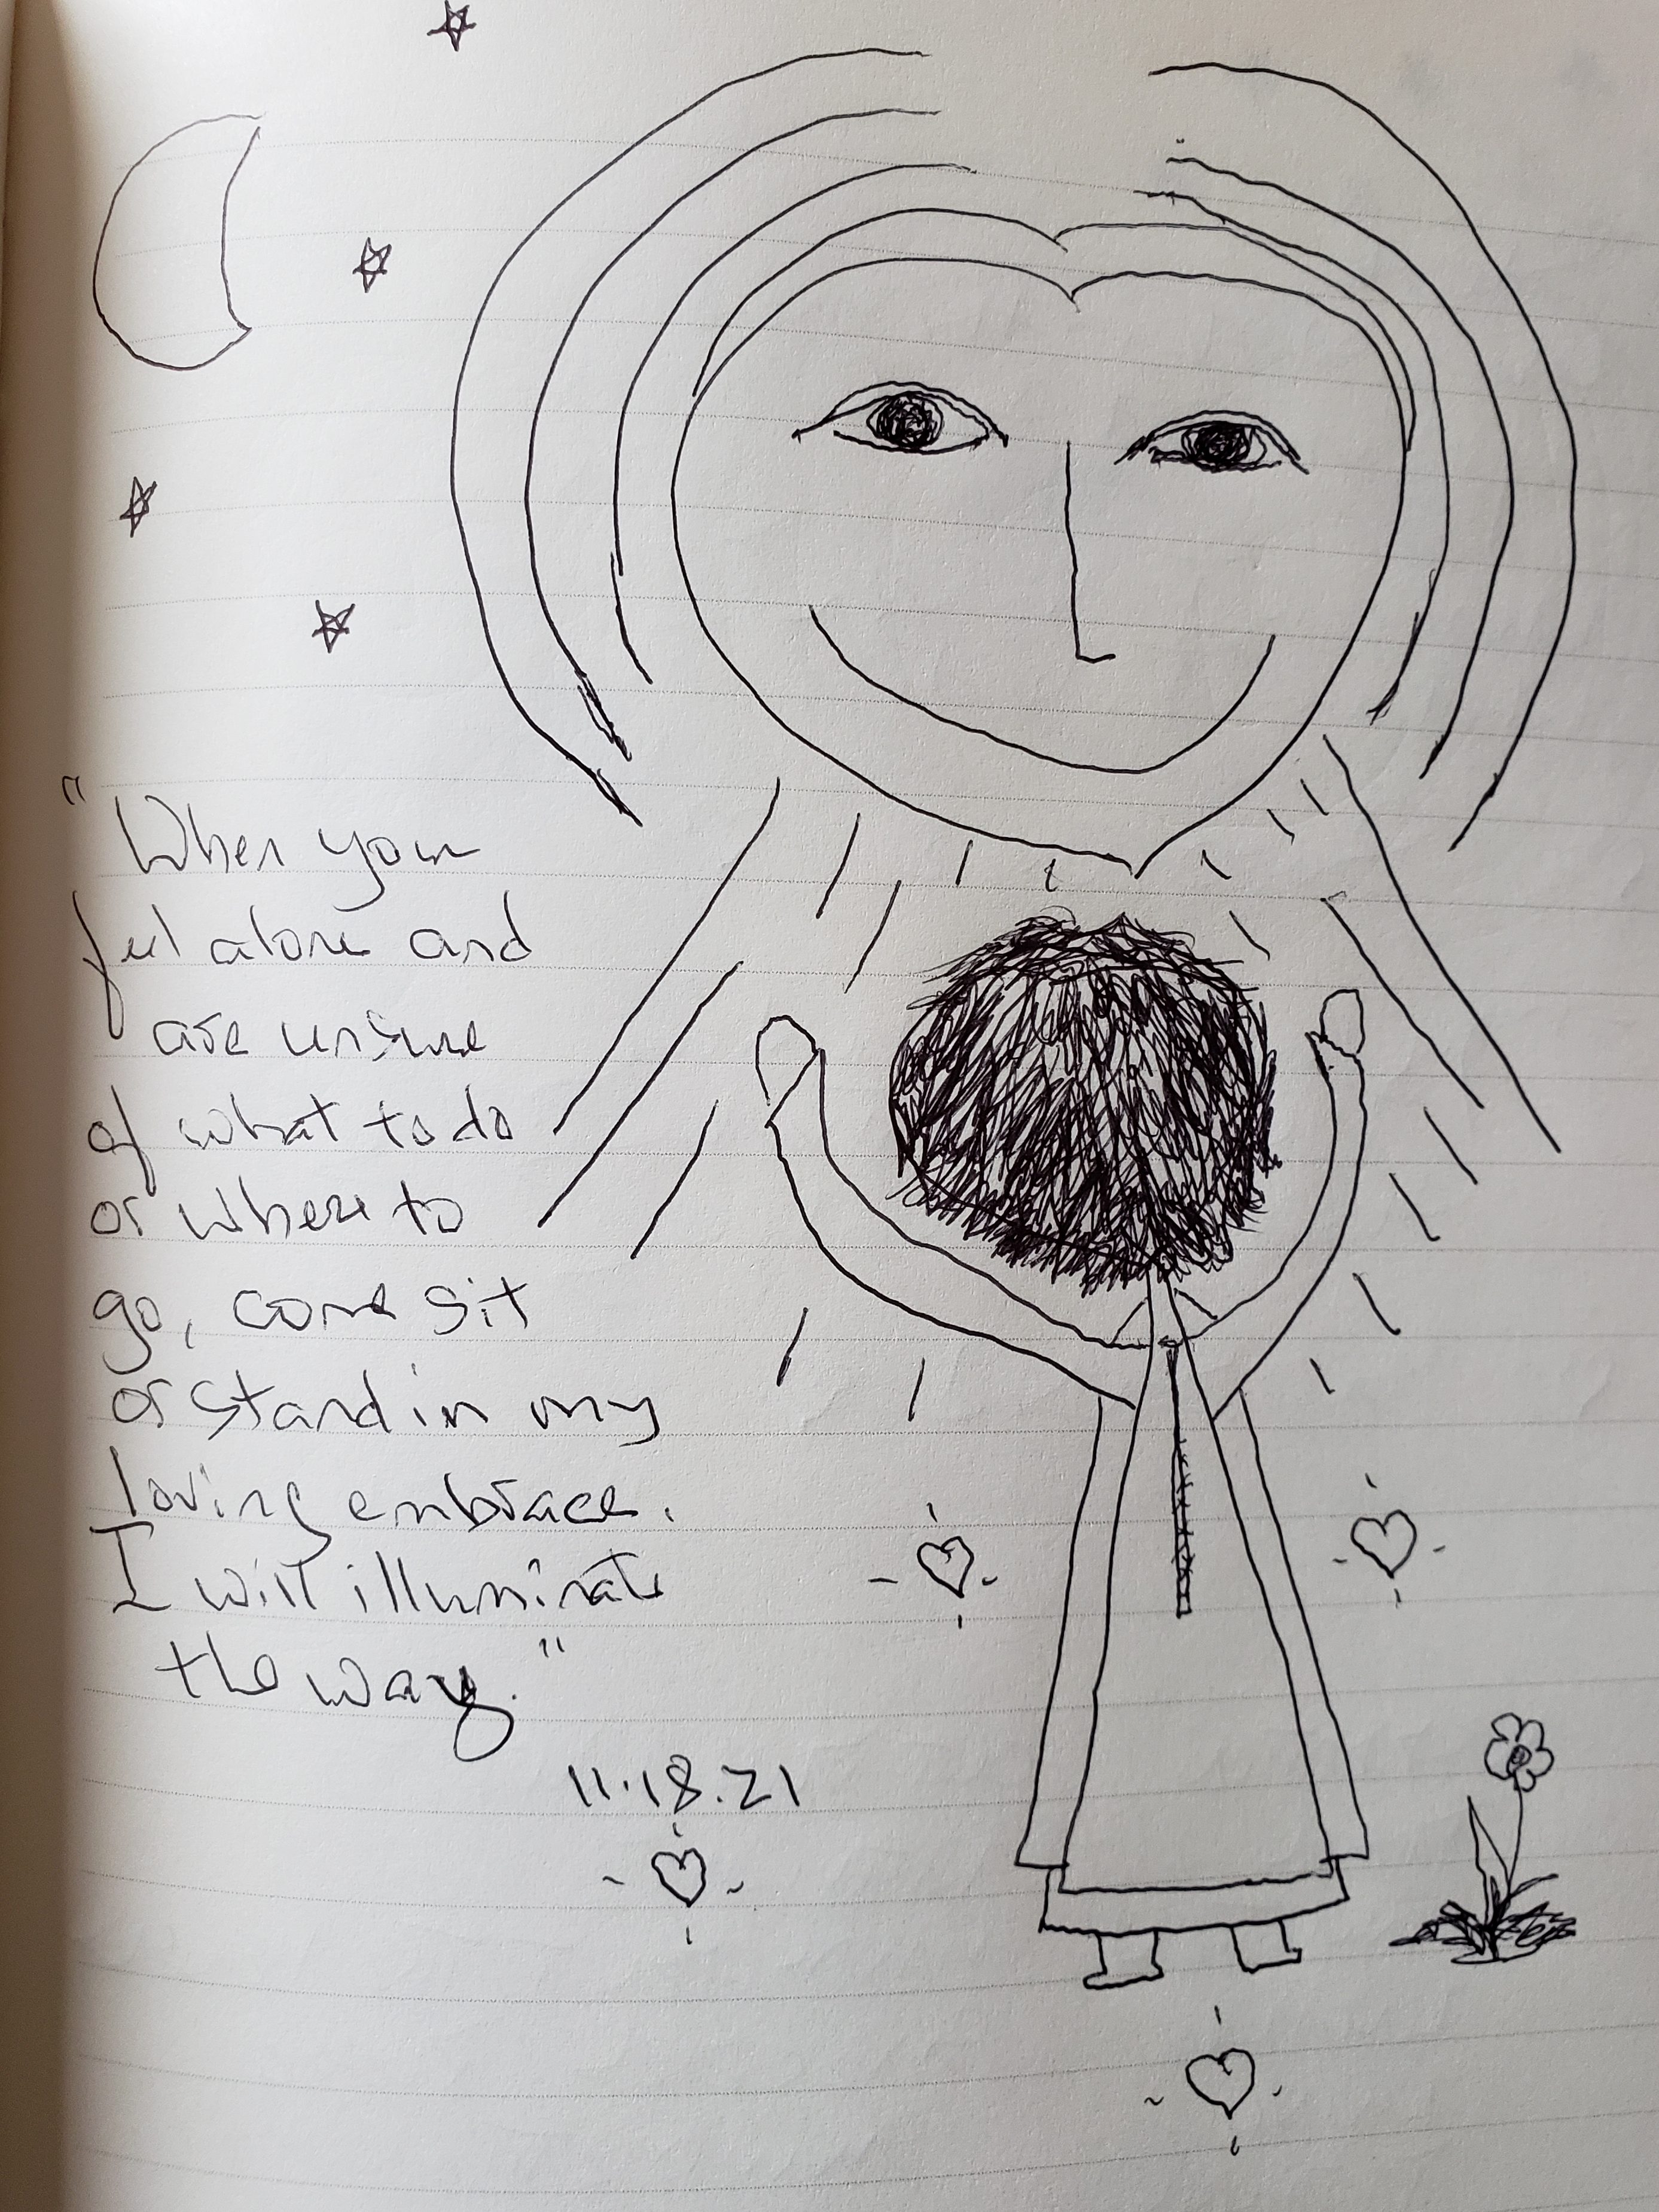 "When you
feel alone and
are unsure
of what to do
or where to
go, come sit
or stand in my
loving embrace.
I will illuminate
the way."
11.18.21